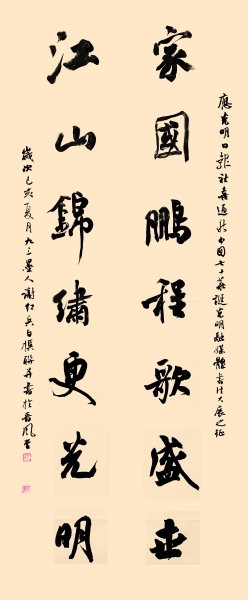 應光明日報社喜迎新中國七十華誕光明融媒體書法大展之征
家國鵬程歌盛世
江山錦繡更光明
歲次己亥夏月九三墨人謝紅兵自撰聯并書於春風堂